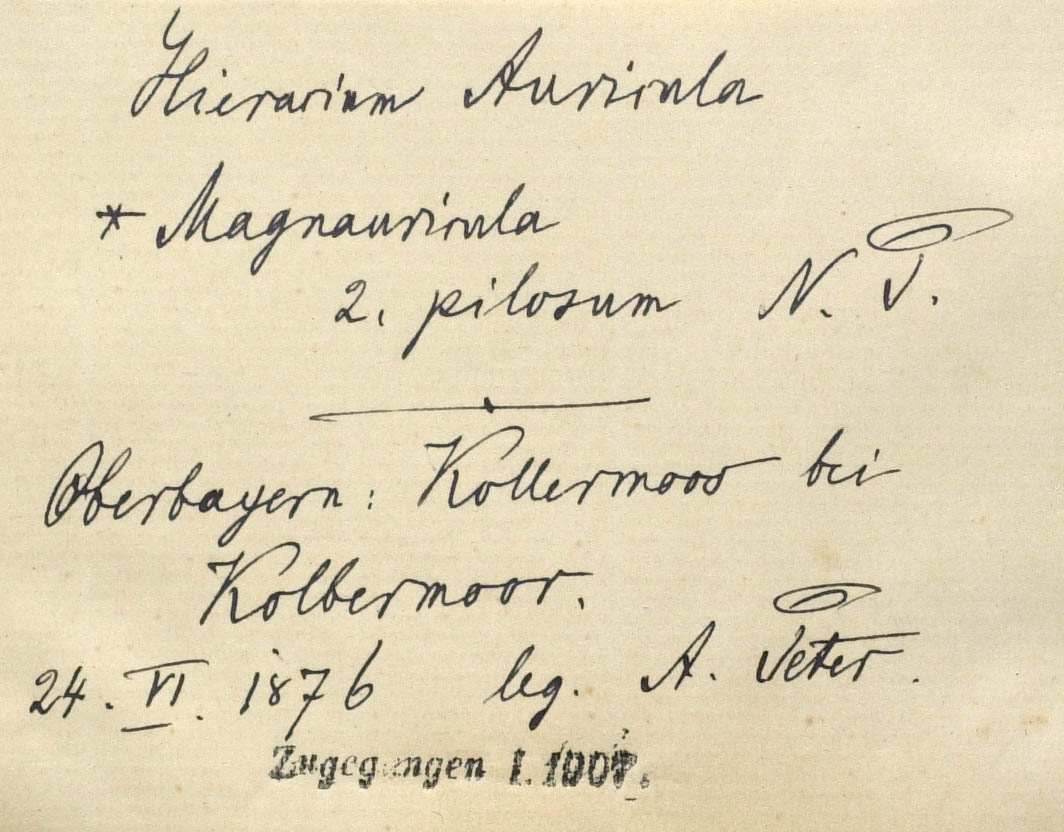 Hieracium Auricula
* Magnauricula
2. pilosum N. P.
Oberbayern: Kollermoos bei
Kolbermoor.
24. VI. 1876 leg. A. Peter.
Zugegangen I.